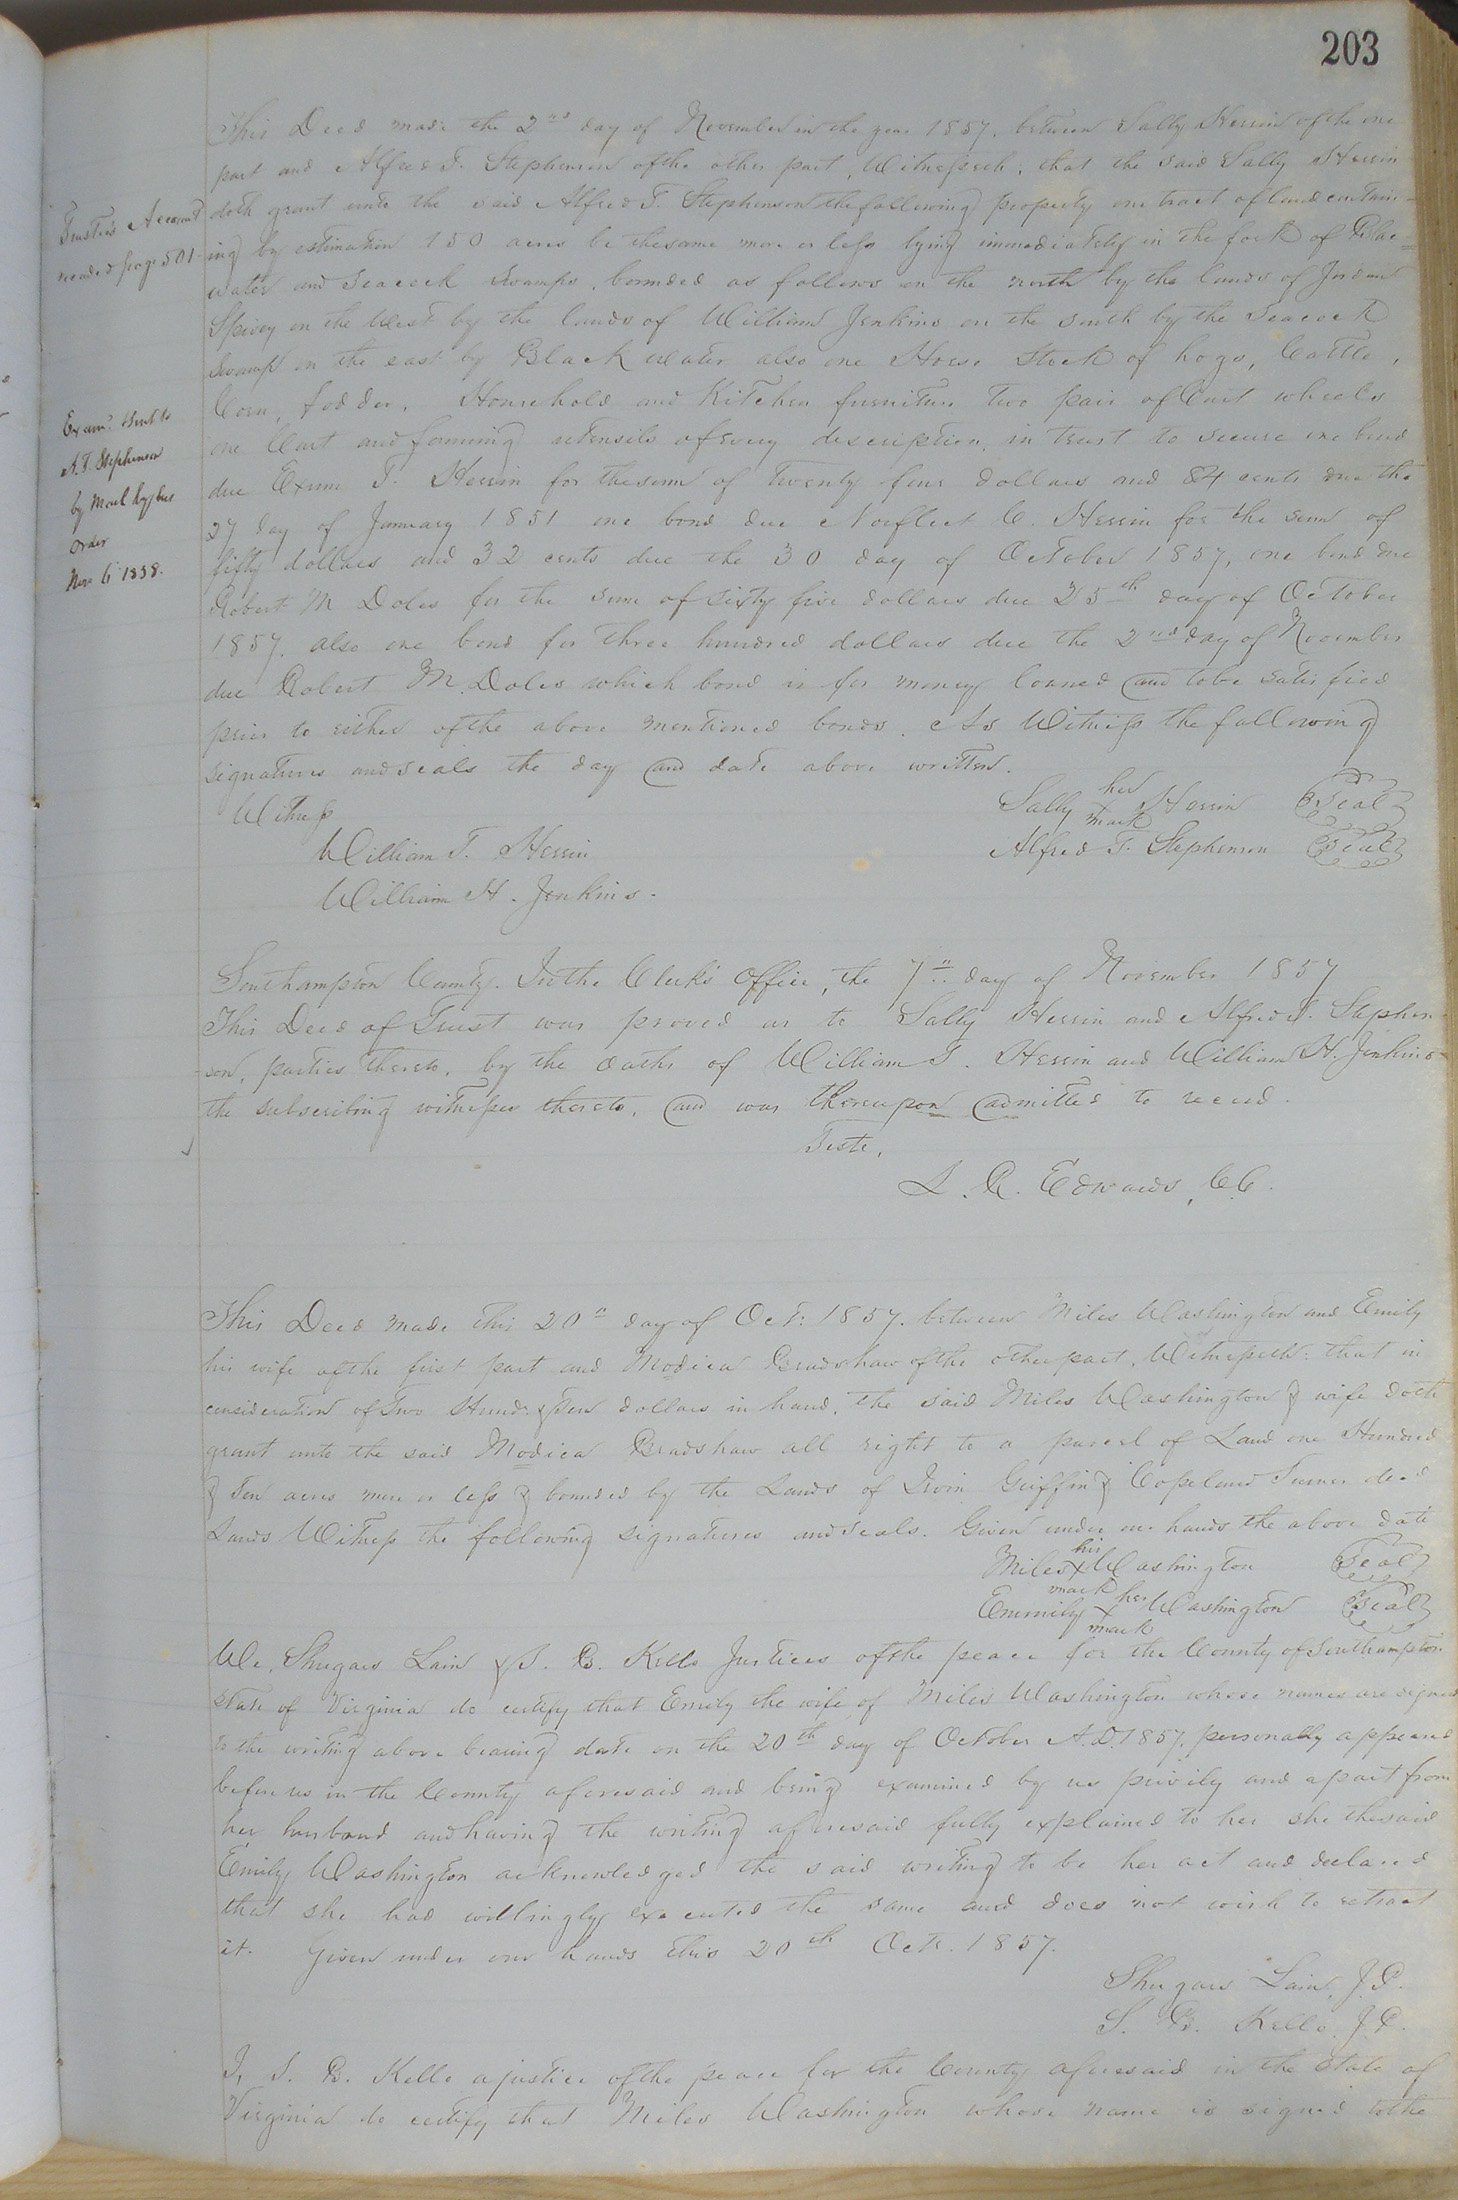 203
This Deed made the 2nd day of November in the year 1857, between Sally Herrin of the one
part and Alfred T. Stephenson of the other part, Witnesseth, that the said Sally Herrin
doth grant unto the said Alfred T. Stephenson the following property one tract of land contain-
ing by estimation 150 acres be the same more or less lying immediately in the fork of Blac=
water and Seacock Swamps, bounded as follows on the north by the lands of Jordan
Spivey on the West by the lands of William Jenkins on the south by the Seacock
Swamp on the east by Black water also one Horse Stock of hogs, Cattle,
Corn, fodder, Household and Kitchen furniture two pair of Cart wheels
one Cart and farming utensils of every description, in trust to secure one bond
due Exum T. Herrin for the sum of twenty four dollars and 84 cents due the
27 day of January 1851 one bond due Norfleet C. Herrin for the sum of
fifty dollars and 32 cents due the 30 day of October 1857, one bond due
Robert M Doles for the sum of sixty five dollars due 25th day of October
1857. also one bond for three hundred dollars due the 2nd day of November
due Robert M Doles which bond is for money loaned and to be satisfied
prior to either of the above mentioned bonds. As Witness the following
signatures and seals the day and date above written.
Trustee's Account
recorded page 501
Exam.d Sent to
A.T. Stephenson
by Mail by his
Order
Nov 6 1858.
Witness
William T. Herrin
William H. Jenkins.
Sally her x mark Herrin Seal
Alfred T. Stephenson Seal
Southampton County. In the Clerk's Office, the 7th day of November 1857
This Deed of Trust was proved as to Sally Herrin and Alfred T. Stephen-
son, parties thereto, by the oaths of William T. Herrin and William H. Jenkins
the subscribing witnesses thereto, and was thereupon admitted to record.
Teste,
L. R. Edwards, CC.
This Deed made this 20th day of Oct: 1857. between Miles Washington and Emily
his wife of the first part and Modica Bradshaw of the other part, Witnesseth: that in
consideration of Two Hund: & Ten dollars in hand, the said Miles Washington & wife doth
grant unto the said Modica Bradshaw all right to a parcel of Land one Hundred
& Ten acres more or less & bounded by the Lands of Irvin Griffin & Copeland Turner decd
Lands Witness the following signatures and seals. Given under our hands the above date
Miles his x mark Washington Seal
Emmily her x mark Washington Seal
We, Shugars Lain & S. B. Kello Justices of the peace for the County of Southampton
State of Virginia do certify that Emily the wife of Miles Washington whose names are signed
to the writing above bearing date on the 20th day of October A.D. 1857. personally appeared
before us in the County aforesaid and being examined by us privily and apart from
her husband and having the writing aforesaid fully explained to her she the said
Emily Washington acknowledged the said writing to be her act and declared
that she had willingly executed the same and does not wish to retract
it. Given under our hands this 20th Oct. 1857.
Shugars Lain, J.P.
S. B. Kello, J.P.
I, S. B. Kello a justice of the peace for the County aforesaid in the State of
Virginia do certify that Miles Washington whose name is signed to the